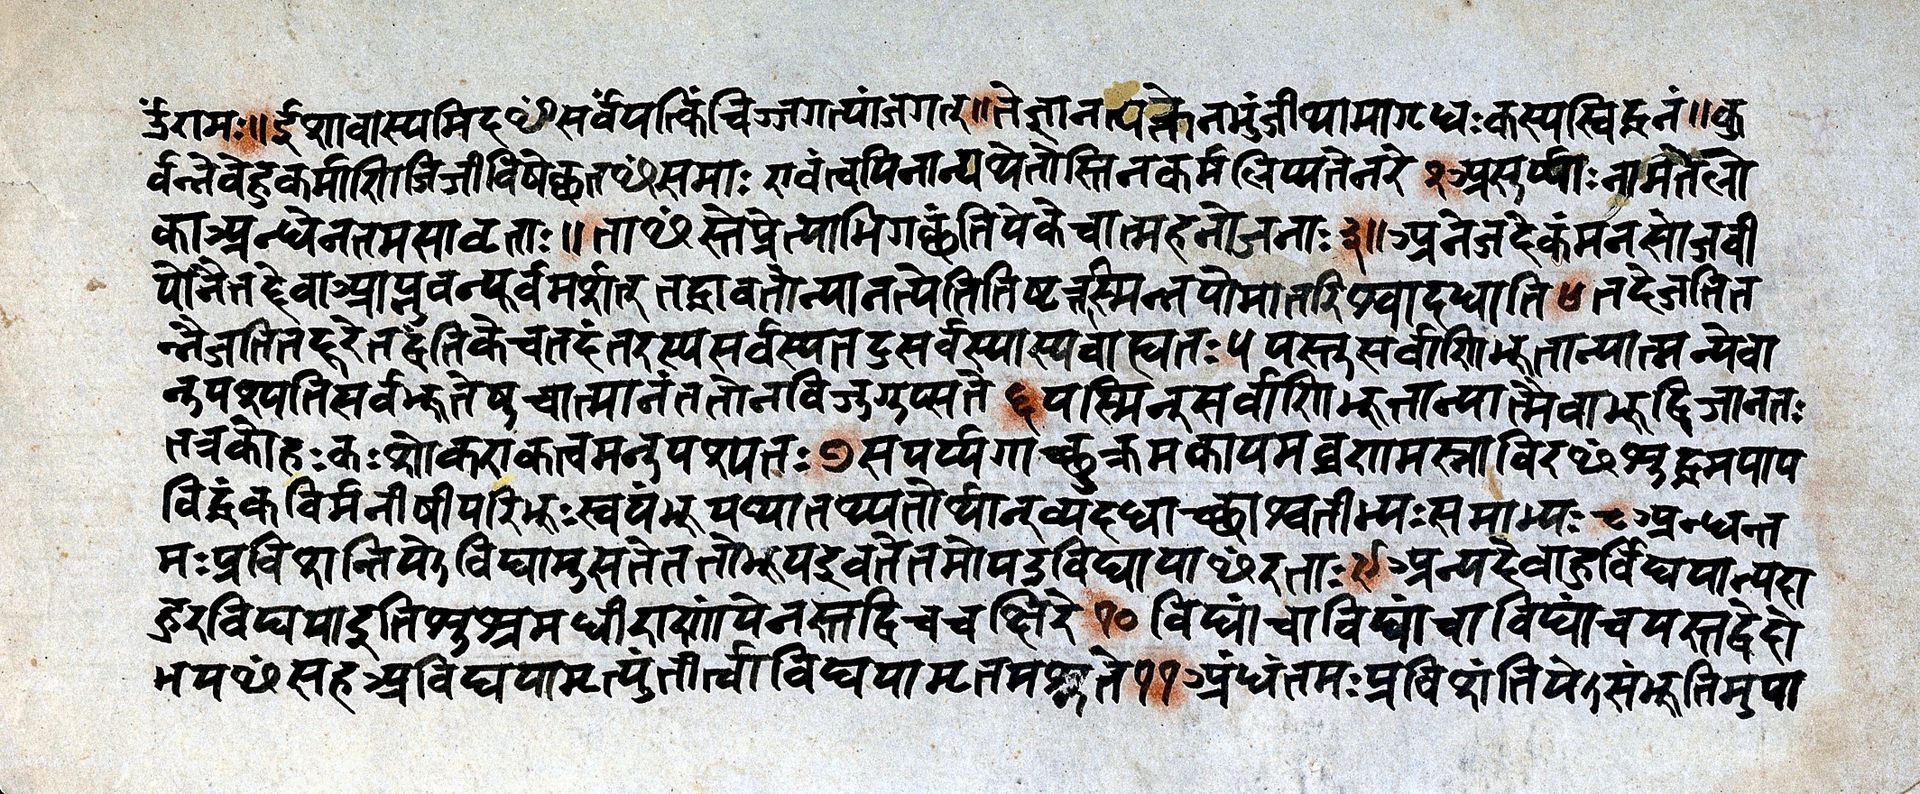 ॐरामः॥ईशावास्यमिदꣳसर्वंयत्किंचिज्जगत्यांजगत्॥तेनत्यक्तेनभुंजीथामागृधःकस्यस्विद्धनं॥कु
र्वन्नेवेहकर्माणिजिजीविषेच्छतꣳसमाः एवंत्वयिनान्यथेतोस्तिनकर्मलिप्यतेनरे २असुर्य्याःनामतेलो
काअन्धेनतमसावृताः॥ताꣳस्तेप्रेत्याभिगच्छंतियेकेचात्महनोजनाः३॥अनेजदेकंमनसोजवी
योनैतद्देवाआप्नुवन्पूर्वमर्शत् तद्धावतोन्यानत्येतितिष्टत्तस्मिन्नपोमातरिश्वादधाति ४ तदेजतित
न्नैजतितद्दूरेतद्वंतिकेचतदंतरस्यसर्वस्यतदुसर्वस्यास्यवाह्यतः५ यस्तुसर्वाणिभूतान्यात्मन्येवा
नुपश्यतिसर्वभूतेषुचात्मानंततोनविजुगुप्सते ६ यस्मिन्सर्वाणिभूतान्यात्मैवाभूद्विजानतः
तत्रकोहःकःशोकएकत्वमनुपश्यतः७सपर्य्यगाच्छुक्रमकायमव्रणमस्नाविरꣳशुद्धमपाप
विद्धंकविर्मनीषीपरिभूःस्वयंभूयथातथ्यतोर्थान्व्यदधाच्छाश्वतीभ्यःसमाभ्यः ८अन्धन्त
मःप्रविशन्तियेऽविद्यामुसतेततोभूयइवतेतमोयउविद्यायाꣳरताः९अन्यदेवाहुर्विद्ययान्यदा
हुरविद्ययाइतिशुश्रमधीराणांयेनस्तद्विचचक्षिरे १० विद्यांचाविद्यांचाविद्यांचयस्तद्वेदो
भयꣳसहअविद्ययामृत्युंतीर्त्वाविद्ययामृतमश्नुते११अंधंतमःप्रविशंतियेऽसंभूतिमुपा